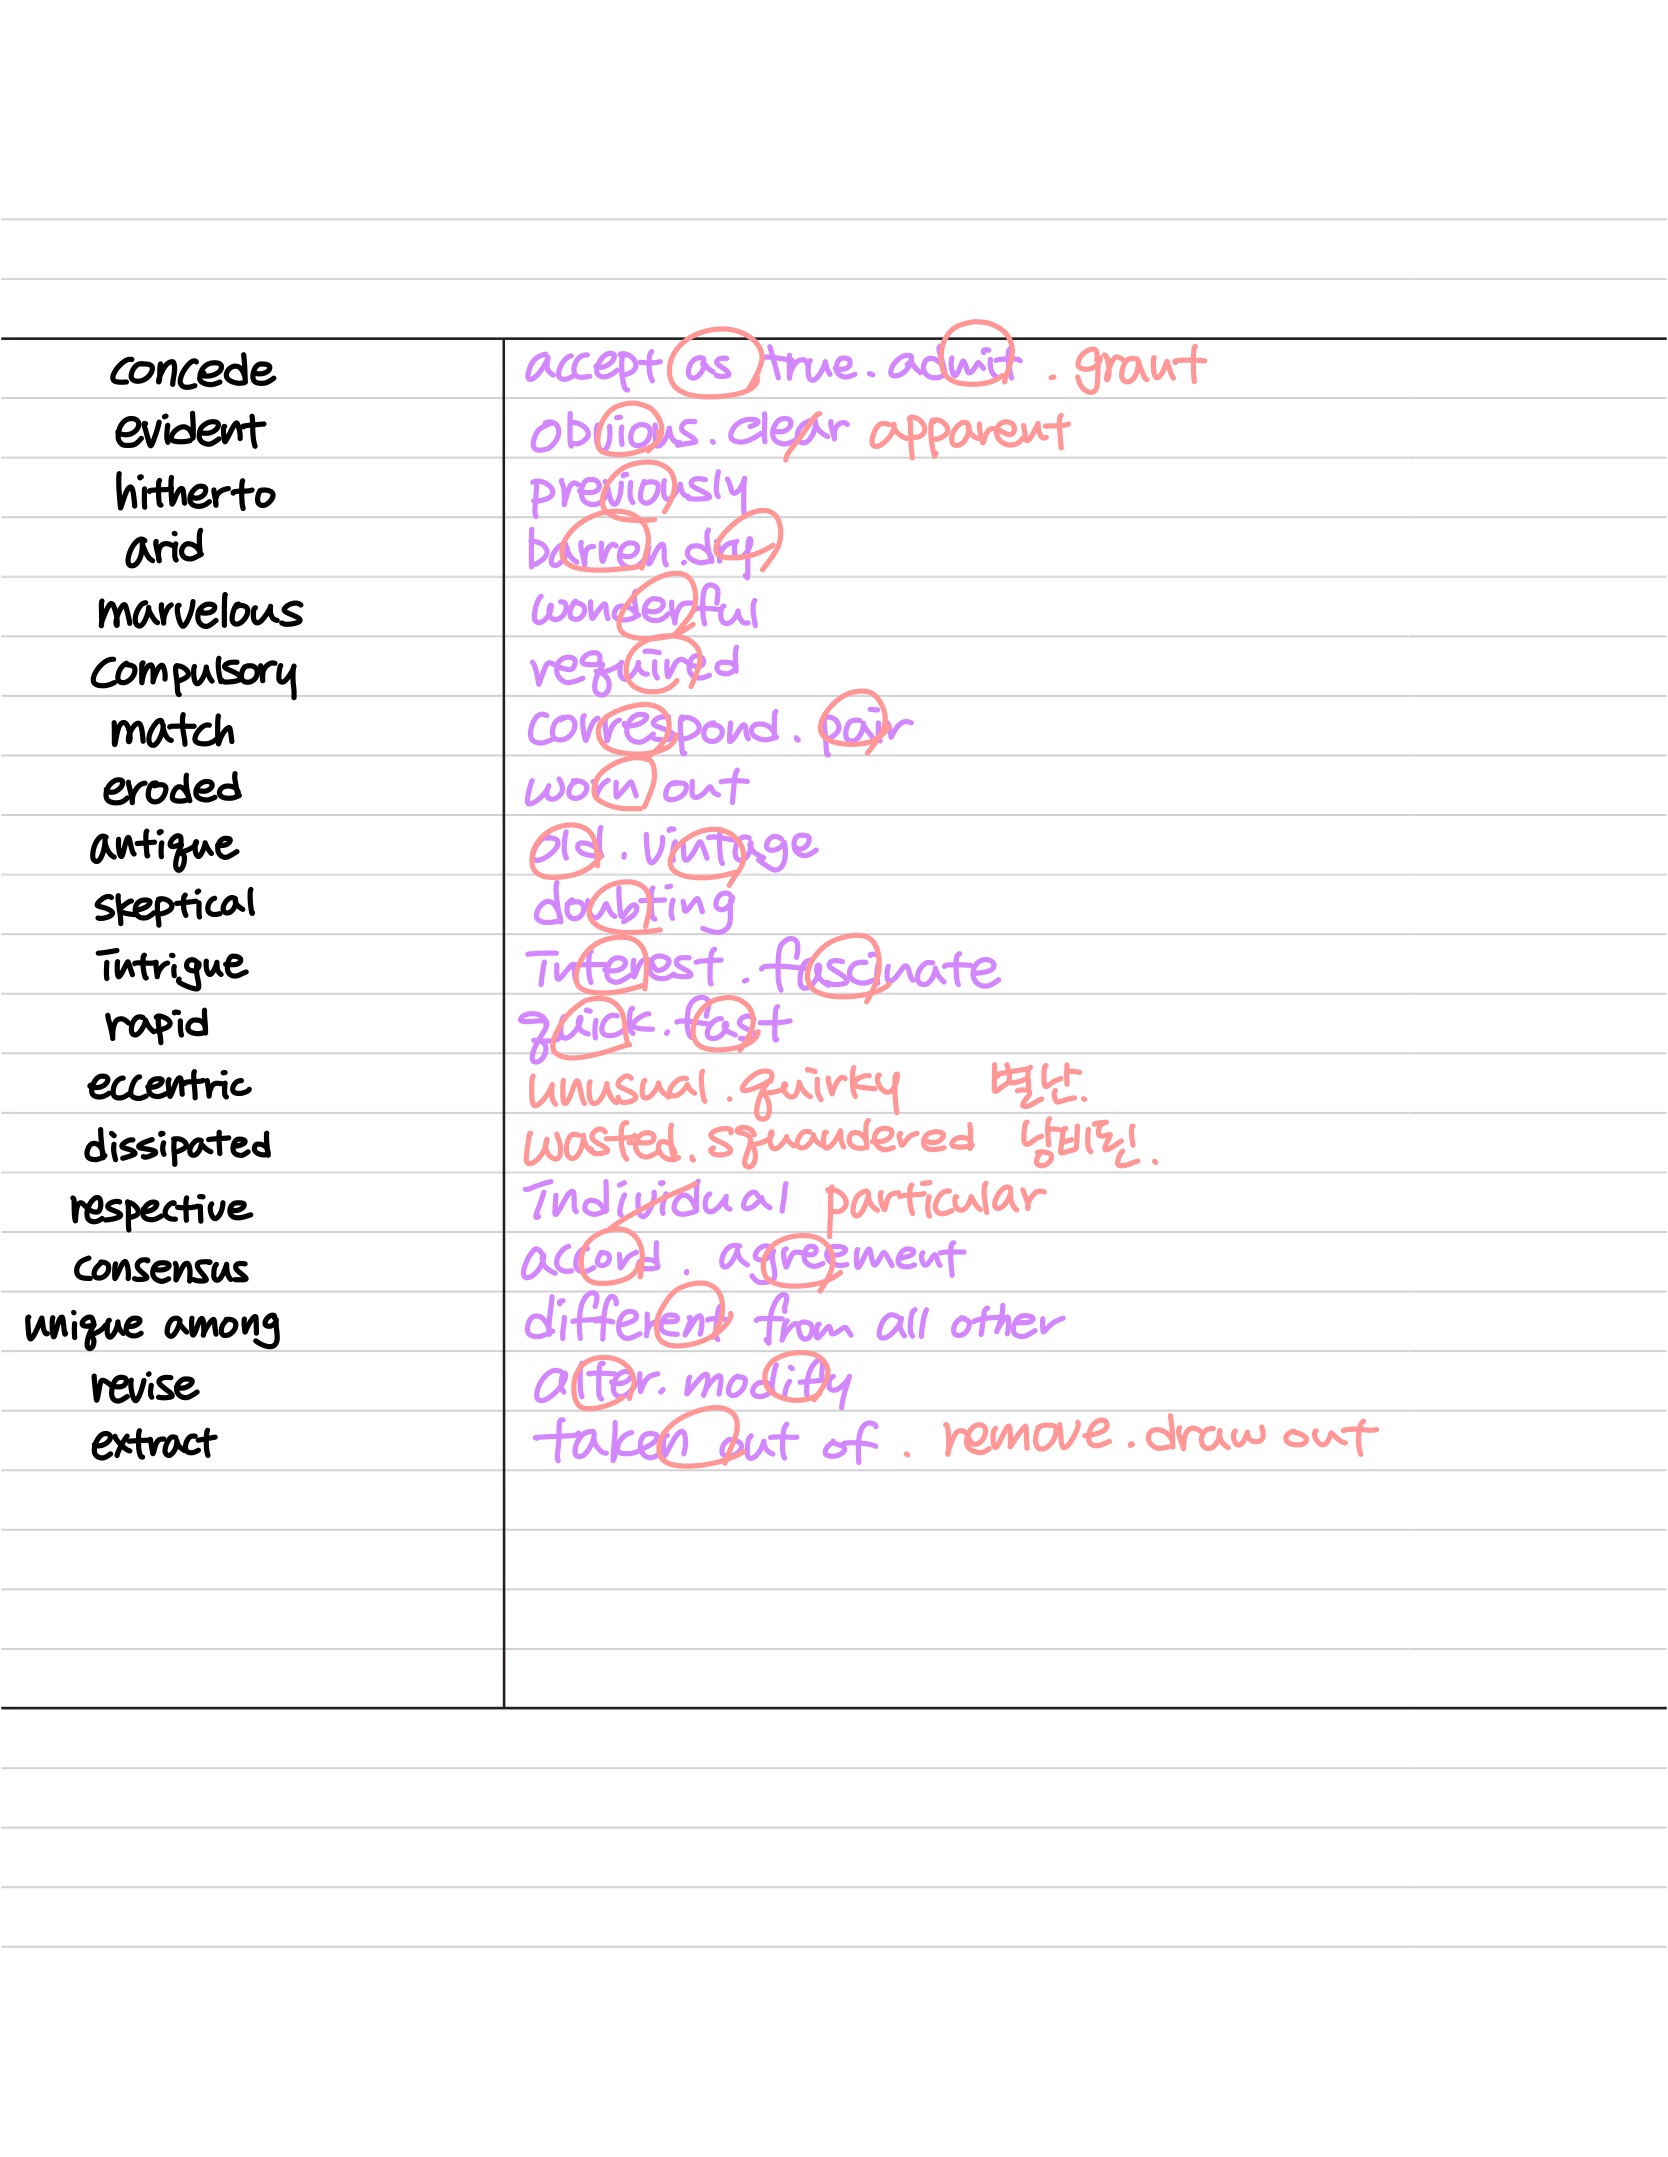 concede accept as true. admit. grant
evident obvious. clear apparent
hitherto previously
arid barren. dry
marvelous wonderful
compulsory required
match correspond. pair
eroded worn out
antique old. vintage
skeptical doubting
intrigue interest. fascinate
rapid quick. fast
eccentric unusual. quirky 별난.
dissipated wasted. squandered 낭비된.
respective individual particular
consensus accord. agreement
unique among different from all other
revise alter. modify
extract taken out of. remove. draw out